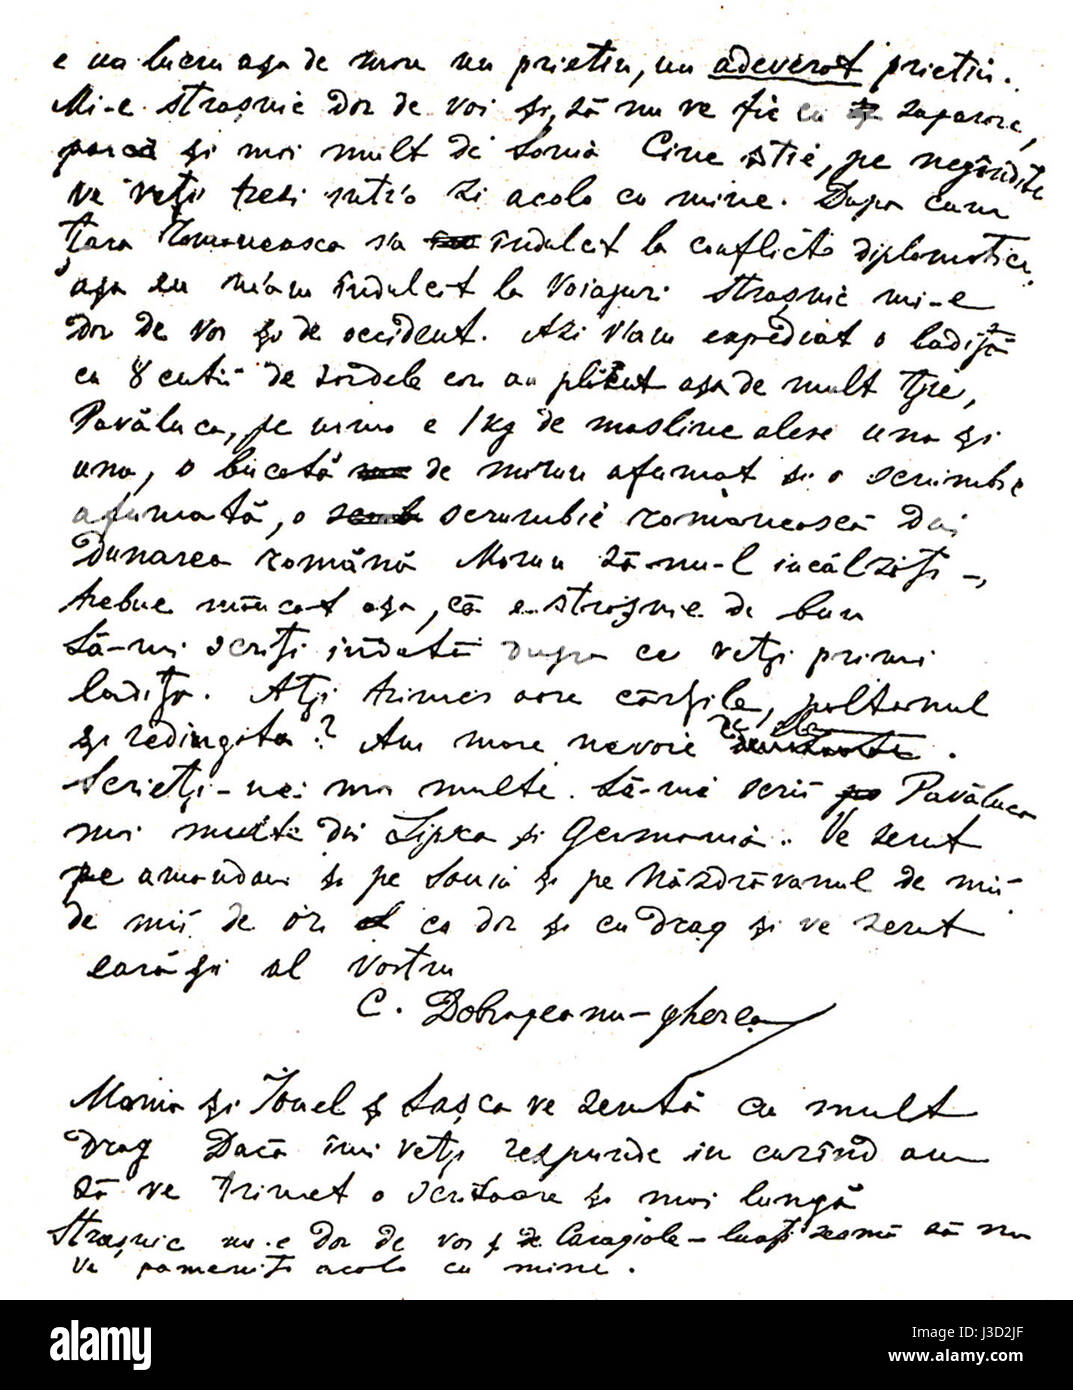 e un lucru așa de mare un prietin, un adevărat prietin.
Mi-e strașnic dor de voi și, să nu ve fie cu supărare,
parcă și mai mult de Sonia Cine știe, pe negîndite
ve veți trezi intr'o zi acolo cu mine. Dupa cum
țara Romaneasca s'a îndulcit la conflicte diplomatice,
așa eu m'am îndulcit la voiajuri strașnic mi-e
dor de voi și de occident. Azi v'am expediat o ladiță
cu 8 cutii de care au plăcut așa de mult ție,
Pavăluca, pe urma e 1 kg de masline alese una și
una, o bucată de morun afumat si o scrumbie
afumată, o scrumbie românească din
Dunarea română Morun să-nu-l incălziți -
trebue mâncat așa, că e strașnic de bun
Să-mi scriți îndată dupa ce veți primi
ladița. Ați trimes oare cărțile, paltonul
și redingota? Am mare nevoie de ele.
Scrieți-nei mai multe. Să-mi scrii Pavăluca
mai multe din Lipsca și Germania. Ve serut
pe amandoi și pe Sonia și pe Năzdrăvanul de mii
de mii de ori cu dor și cu drag și ve serut
earăși al vostru
C. Dobrogeanu-gherea
Maria și Ionel și Sașca ve serută cu mult
drag Dacă îmi veți respunde in curînd am
să ve trimet o scrisoare și mai lungă
Strașnic mi-e dor de voi și de Caragiale - luați seamă să nu
ve pomeniți acolo cu mine.
alamy
Image ID: J3D2JF
www.alamy.com